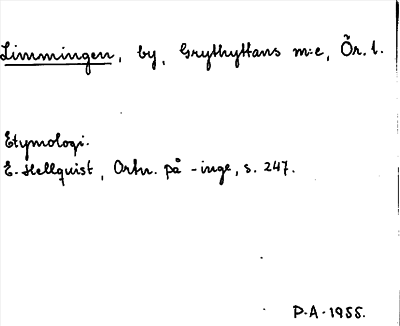 Limmingen, by, Grythyttans m:e, Ör. l.
Etymologi.
E. Hellquist, Ortn. på -inge, s. 247.
P.A. 1955.